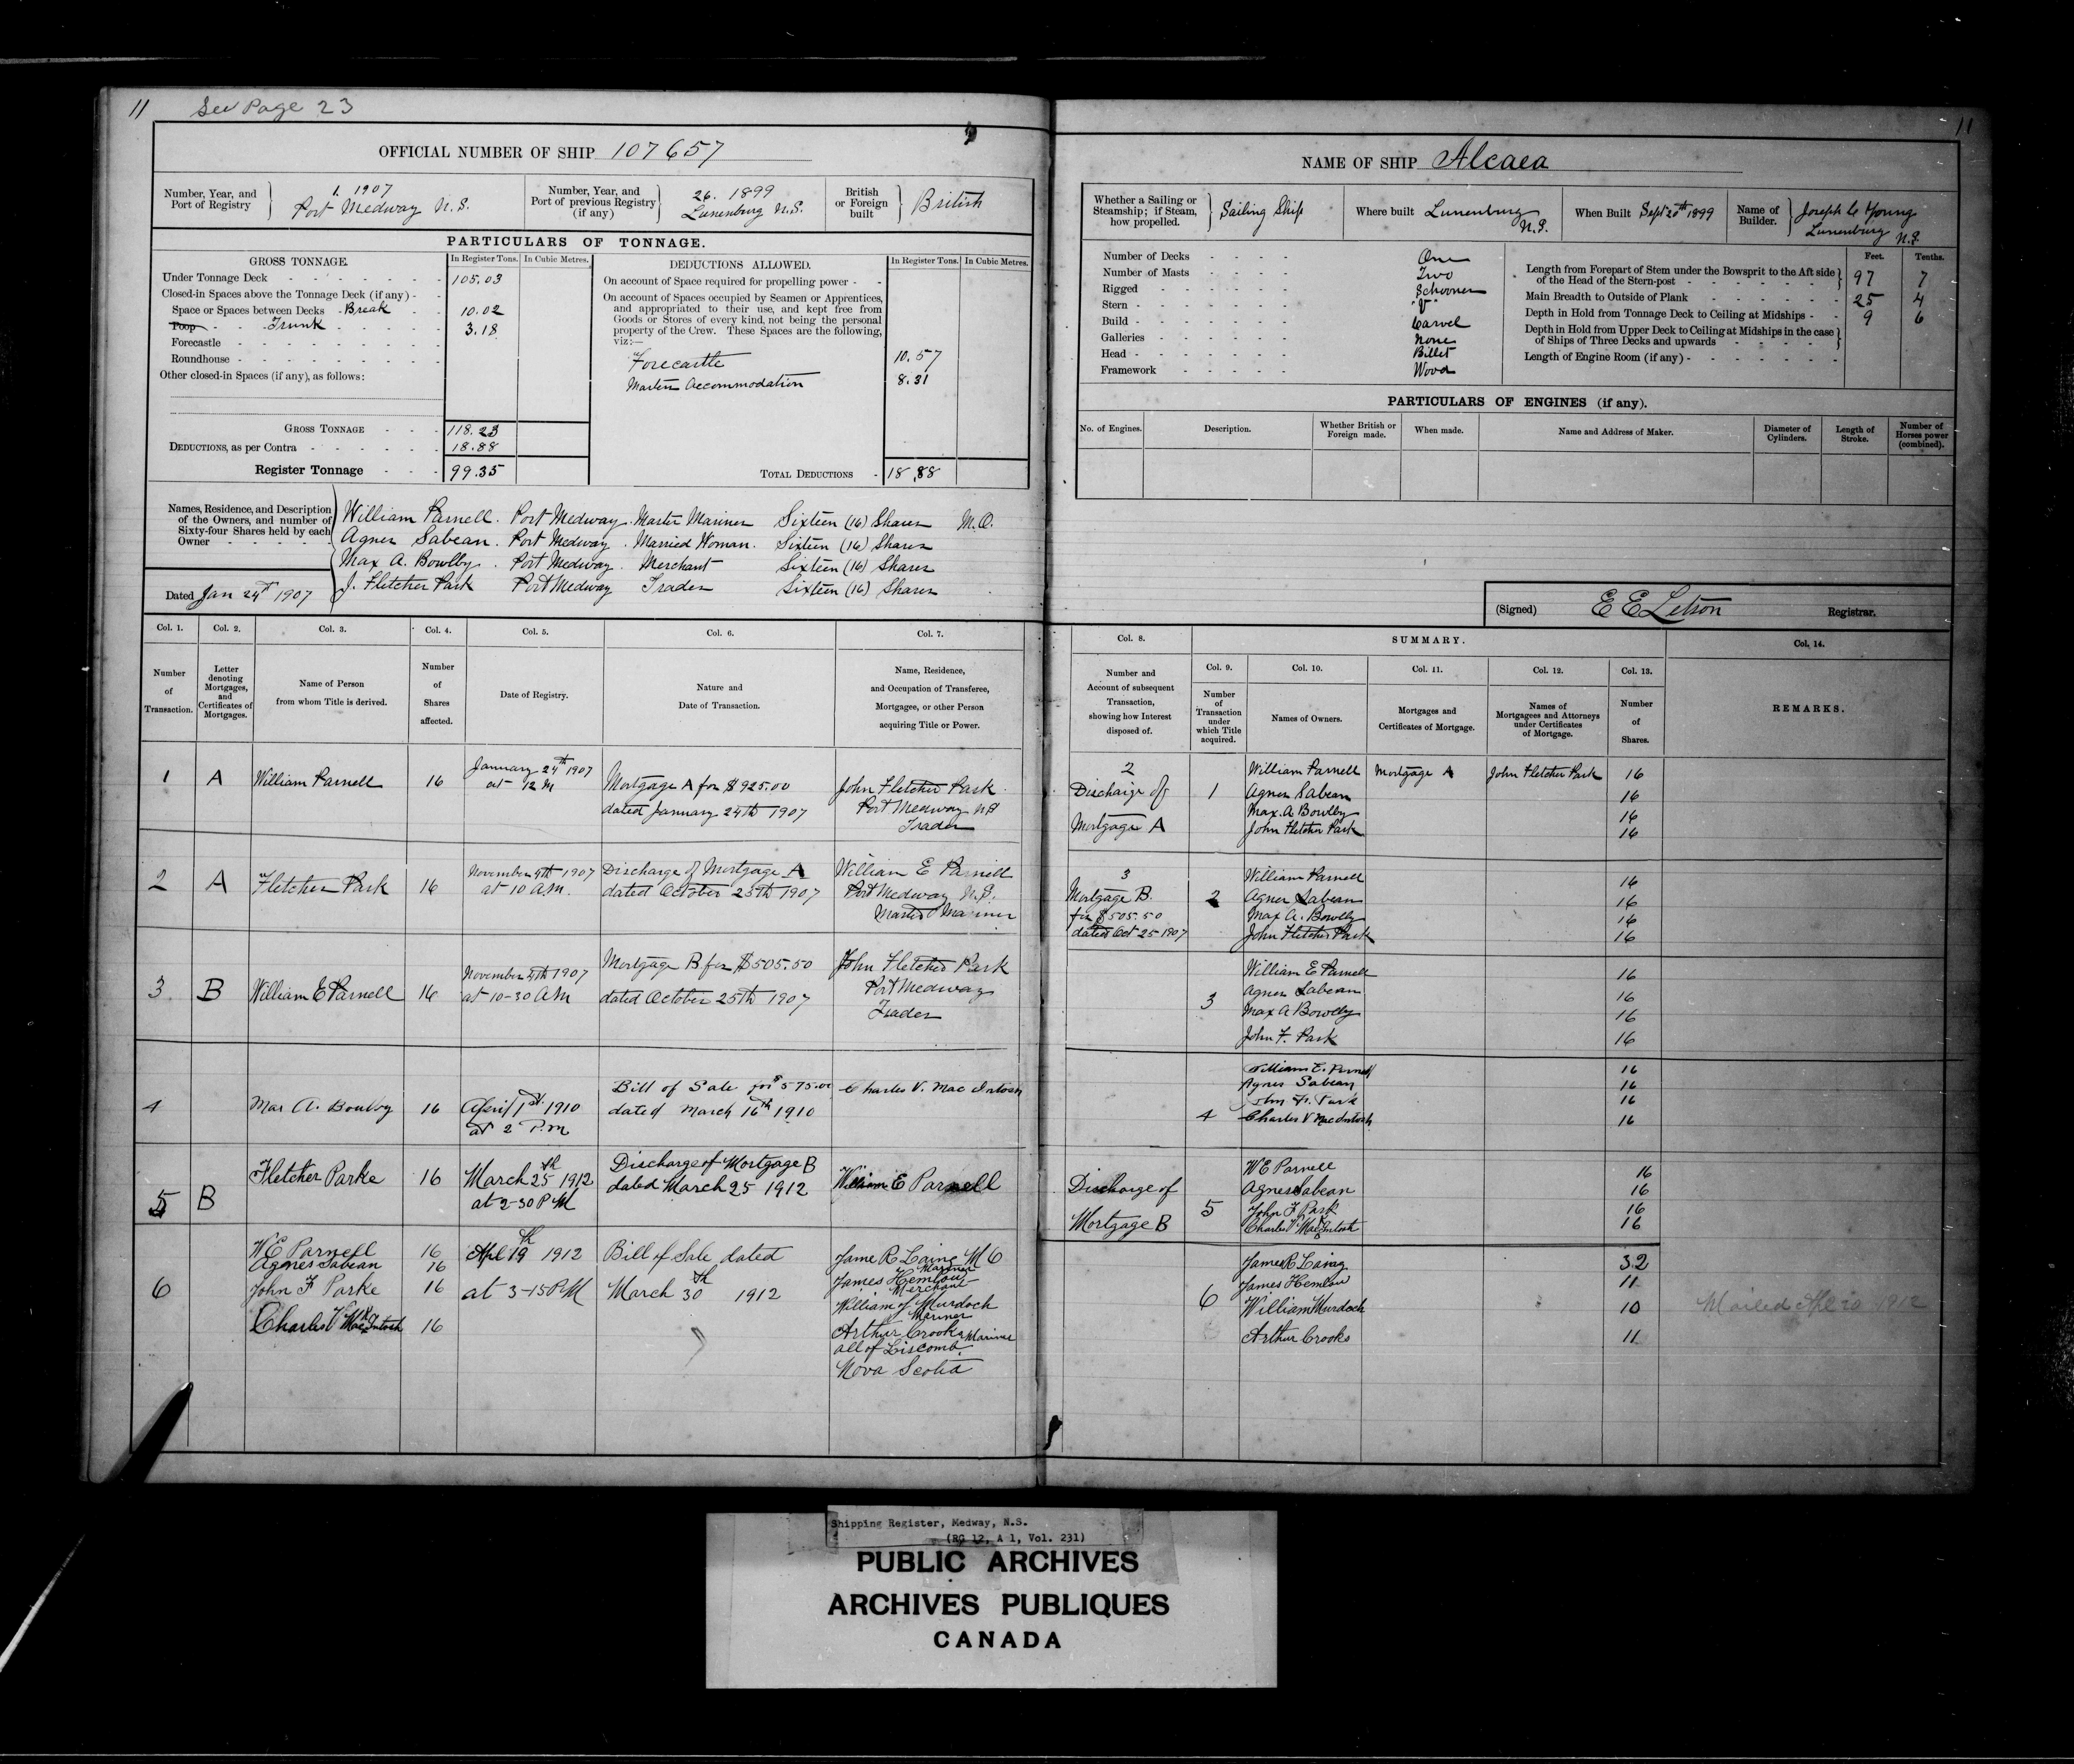 11 See Page 23
OFFICIAL NUMBER OF SHIP 107657
Number, Year, and Port of Registry } 1. 1907 Port Medway N.S.
Number, Year, and Port of previous Registry (if any) } 26. 1899 Lunenburg N.S.
British or Foreign built } British
PARTICULARS OF TONNAGE.
GROSS TONNAGE. In Register Tons. In Cubic Metres.
Under Tonnage Deck - - - - - - 105.03
Closed-in Spaces above the Tonnage Deck (if any) - -
Space or Spaces between Decks - Break - - 10.02
Poop - - Trunk - - - - 3.18
Forecastle - - - - - - - -
Roundhouse - - - - - - - -
Other closed-in Spaces (if any), as follows:
GROSS TONNAGE - - - 118.23
DEDUCTIONS, as per Contra - - - - - - 18.88
Register Tonnage - - - 99.35
DEDUCTIONS ALLOWED. In Register Tons. In Cubic Metres.
On account of Space required for propelling power - -
On account of Spaces occupied by Seamen or Apprentices,
and appropriated to their use, and kept free from
Goods or Stores of every kind, not being the personal
property of the Crew. These Spaces are the following,
viz:—
Forecastle 10.57
Masters Accommodation 8.31
TOTAL DEDUCTIONS - 18.88
Names, Residence, and Description
of the Owners, and number of
Sixty-four Shares held by each
Owner - - - - -
William Parnell. Port Medway. Master Mariner Sixteen (16) Shares M.O.
Agnes Sabean. Port Medway. Married Woman. Sixteen (16) Shares
Max A. Bowlby. Port Medway. Merchant Sixteen (16) Shares
J. Fletcher Park Port Medway Trader Sixteen (16) Shares
Dated Jan 24th 1907
Col. 1. Col. 2. Col. 3. Col. 4. Col. 5. Col. 6. Col. 7.
Number of Transaction.
Letter denoting Mortgages, and Certificates of Mortgages.
Name of Person from whom Title is derived.
Number of Shares affected.
Date of Registry.
Nature and Date of Transaction.
Name, Residence, and Occupation of Transferee, Mortgagee, or other Person acquiring Title or Power.
1 A William Parnell 16
January 24th 1907
at 12 M
Mortgage A for $925.00
dated January 24th 1907
John Fletcher Park
Port Medway NS
Trader
2 A Fletcher Park 16
November 4th 1907
at 10 A.M.
Discharge of Mortgage A
dated October 25th 1907
William E Parnell
Port Medway N.S.
Master Mariner
3 B William E Parnell 16
November 4th 1907
at 10-30 A.M
Mortgage B for $505.50
dated October 25th 1907
John Fletcher Park
Port Medway
Trader
4 Max A. Bowlby 16
April 1st 1910
at 2 P.m
Bill of Sale for $575.00
dated March 16th 1910
Charles V. Mac Intosh
5 B Fletcher Parke 16
March 25th 1912
at 2-30 PM
Discharge of Mortgage B
dated March 25 1912
William E Parnell
6
W E Parnell 16
Agnes Sabean 16
John F Parke 16
Charles V MacIntosh 16
Apl 19th 1912
at 3-15 PM
Bill of Sale dated
March 30th 1912
Jame R Laing M O
Mariner
James Hemlow
Merchant
William J Murdoch
Mariner
Arthur Crooks Mariner
all of Liscomb
Nova Scotia
11
NAME OF SHIP Alcaea
Whether a Sailing or Steamship; if Steam, how propelled. } Sailing Ship
Where built Lunenburg N.S.
When Built Sept 20th 1899
Name of Builder. } Joseph C Young Lunenburg N.S.
Number of Decks - - - - One
Number of Masts - - - - Two
Rigged - - - - - Schooner
Stern - - - - - "V"
Build - - - - - Carvel
Galleries - - - - None
Head - - - - - Billet
Framework - - - - Wood
Feet. Tenths.
Length from Forepart of Stem under the Bowsprit to the Aft side of the Head of the Stern-post - - 97 7
Main Breadth to Outside of Plank - - - - - - 25 4
Depth in Hold from Tonnage Deck to Ceiling at Midships - - 9 6
Depth in Hold from Upper Deck to Ceiling at Midships in the case of Ships of Three Decks and upwards - - - -
Length of Engine Room (if any) - - - - - - -
PARTICULARS OF ENGINES (if any).
No. of Engines. Description. Whether British or Foreign made. When made. Name and Address of Maker. Diameter of Cylinders. Length of Stroke. Number of Horses power (combined).
(Signed) E E Letson Registrar.
Col. 8. SUMMARY.
Col. 9. Col. 10. Col. 11. Col. 12. Col. 13. Col. 14.
Number and Account of subsequent Transaction, showing how Interest disposed of.
Number of Transaction under which Title acquired.
Names of Owners.
Mortgages and Certificates of Mortgage.
Names of Mortgagees and Attorneys under Certificates of Mortgage.
Number of Shares.
REMARKS.
2
Discharge of
Mortgage A
1
William Parnell Mortgage A John Fletcher Park 16
Agnes Sabean 16
Max. A Bowlby 16
John Fletcher Park 16
3
Mortgage B.
for $505.50
dated Oct 25 1907
2
William Parnell 16
Agnes Sabean 16
Max A. Bowlby 16
John Fletcher Park 16
3
William E Parnell 16
Agnes Sabean 16
Max A Bowlby 16
John F. Park 16
4
William E. Parnell 16
Agnes Sabean 16
John F. Park 16
Charles V MacIntosh 16
Discharge of
Mortgage B
5
W E Parnell 16
Agnes Sabean 16
John F Park 16
Charles V MacIntosh 16
6
James R Laing 32
James Hemlow 11
William Murdoch 10
Arthur Crooks 11
Mailed Apl 20 1912
Shipping Register, Medway, N.S.
(RG 12, A 1, Vol. 231)
PUBLIC ARCHIVES
ARCHIVES PUBLIQUES
CANADA